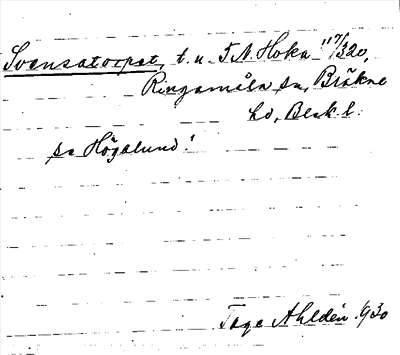 Svensatorpet, t. u. T. N. Hoka 117/320,
Ringamåla sn, Bräkne
hd, Blek. l.
se Högalund!
Tage Ahldén 1930